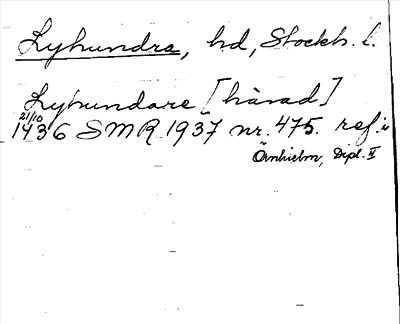 Lyhundra, hd, Stockh. l.
Lyhundare [härad]
21/10
1436 SMR 1937 nr. 475. ref. i
Örnhielm, Dipl. II